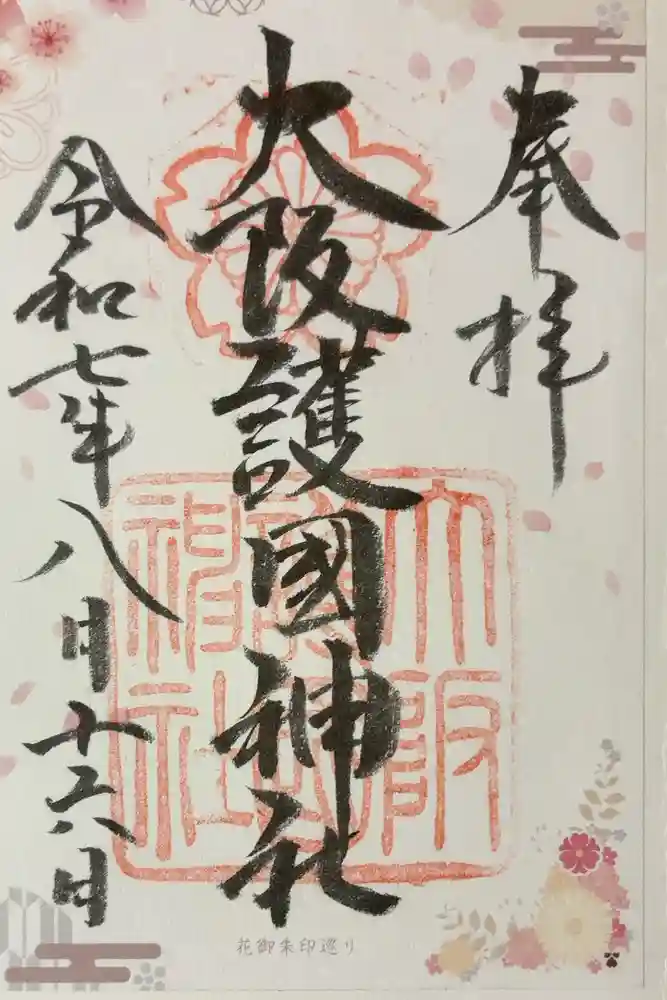 奉拝
大阪護國神社
令和七年八月十六日
大阪
護國
神社
花御朱印巡り